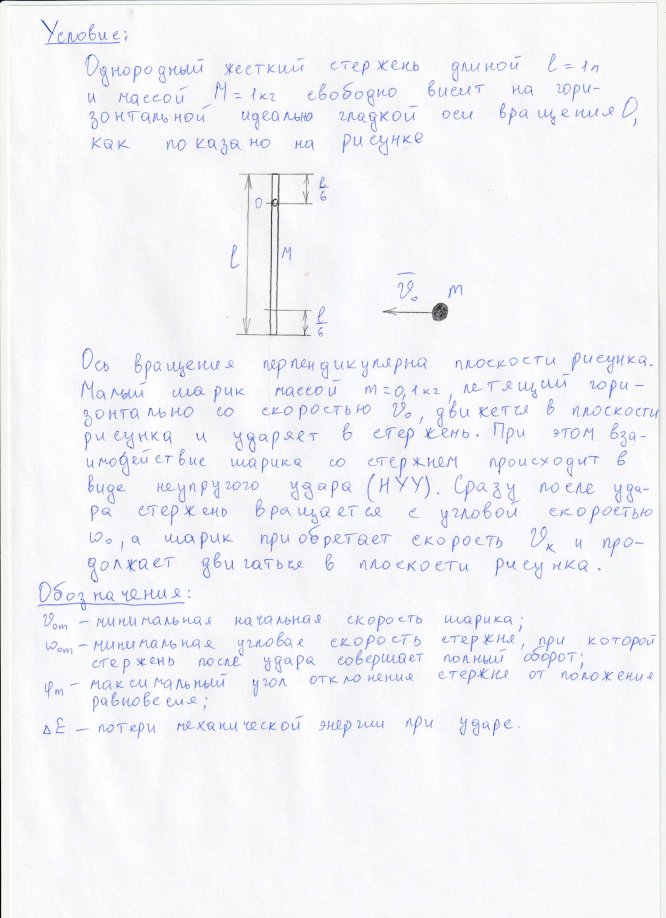 Условие:
Однородный жесткий стержень длиной l = 1м
и массой M = 1кг свободно висит на гори-
зонтальной идеально гладкой оси вращения O,
как показано на рисунке
l
6
O
l
M
l
6
v̅₀
m
Ось вращения перпендикулярна плоскости рисунка.
Малый шарик массой m=0,1кг, летящий гори-
зонтально со скоростью v₀, движется в плоскости
рисунка и ударяет в стержень. При этом вза-
имодействие шарика со стержнем происходит в
виде неупругого удара (НУУ). Сразу после уда-
ра стержень вращается с угловой скоростью
ω₀, а шарик приобретает скорость vₖ и про-
должает двигаться в плоскости рисунка.
Обозначения:
v₀ₘ – минимальная начальная скорость шарика;
ω₀ₘ – минимальная угловая скорость стержня, при которой
стержень после удара совершает полный оборот;
φₘ – максимальный угол отклонения стержня от положения
равновесия;
ΔE – потери механической энергии при ударе.